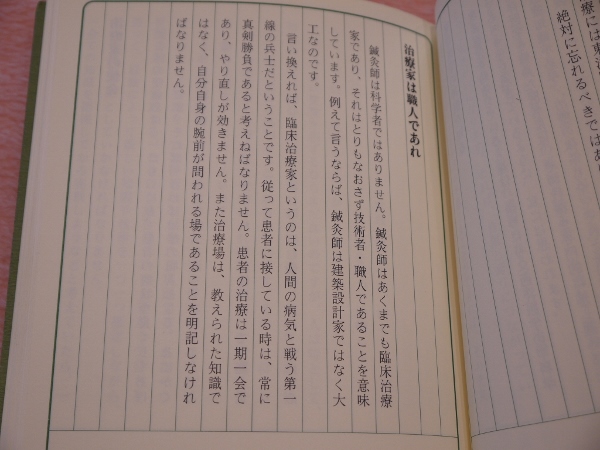 療には東洋
絶対に忘れるべきではあ
治療家は職人であれ
鍼灸師は科学者ではありません。鍼灸師はあくまでも臨床治療
家であり、それはとりもなおさず技術者・職人であることを意味
しています。例えて言うならば、鍼灸師は建築設計家ではなく大
工なのです。
言い換えれば、臨床治療家というのは、人間の病気と戦う第一
線の兵士だということです。従って患者に接している時は、常に
真剣勝負であると考えねばなりません。患者の治療は一期一会で
あり、やり直しが効きません。また治療場は、教えられた知識で
はなく、自分自身の腕前が問われる場であることを明記しなけれ
ばなりません。